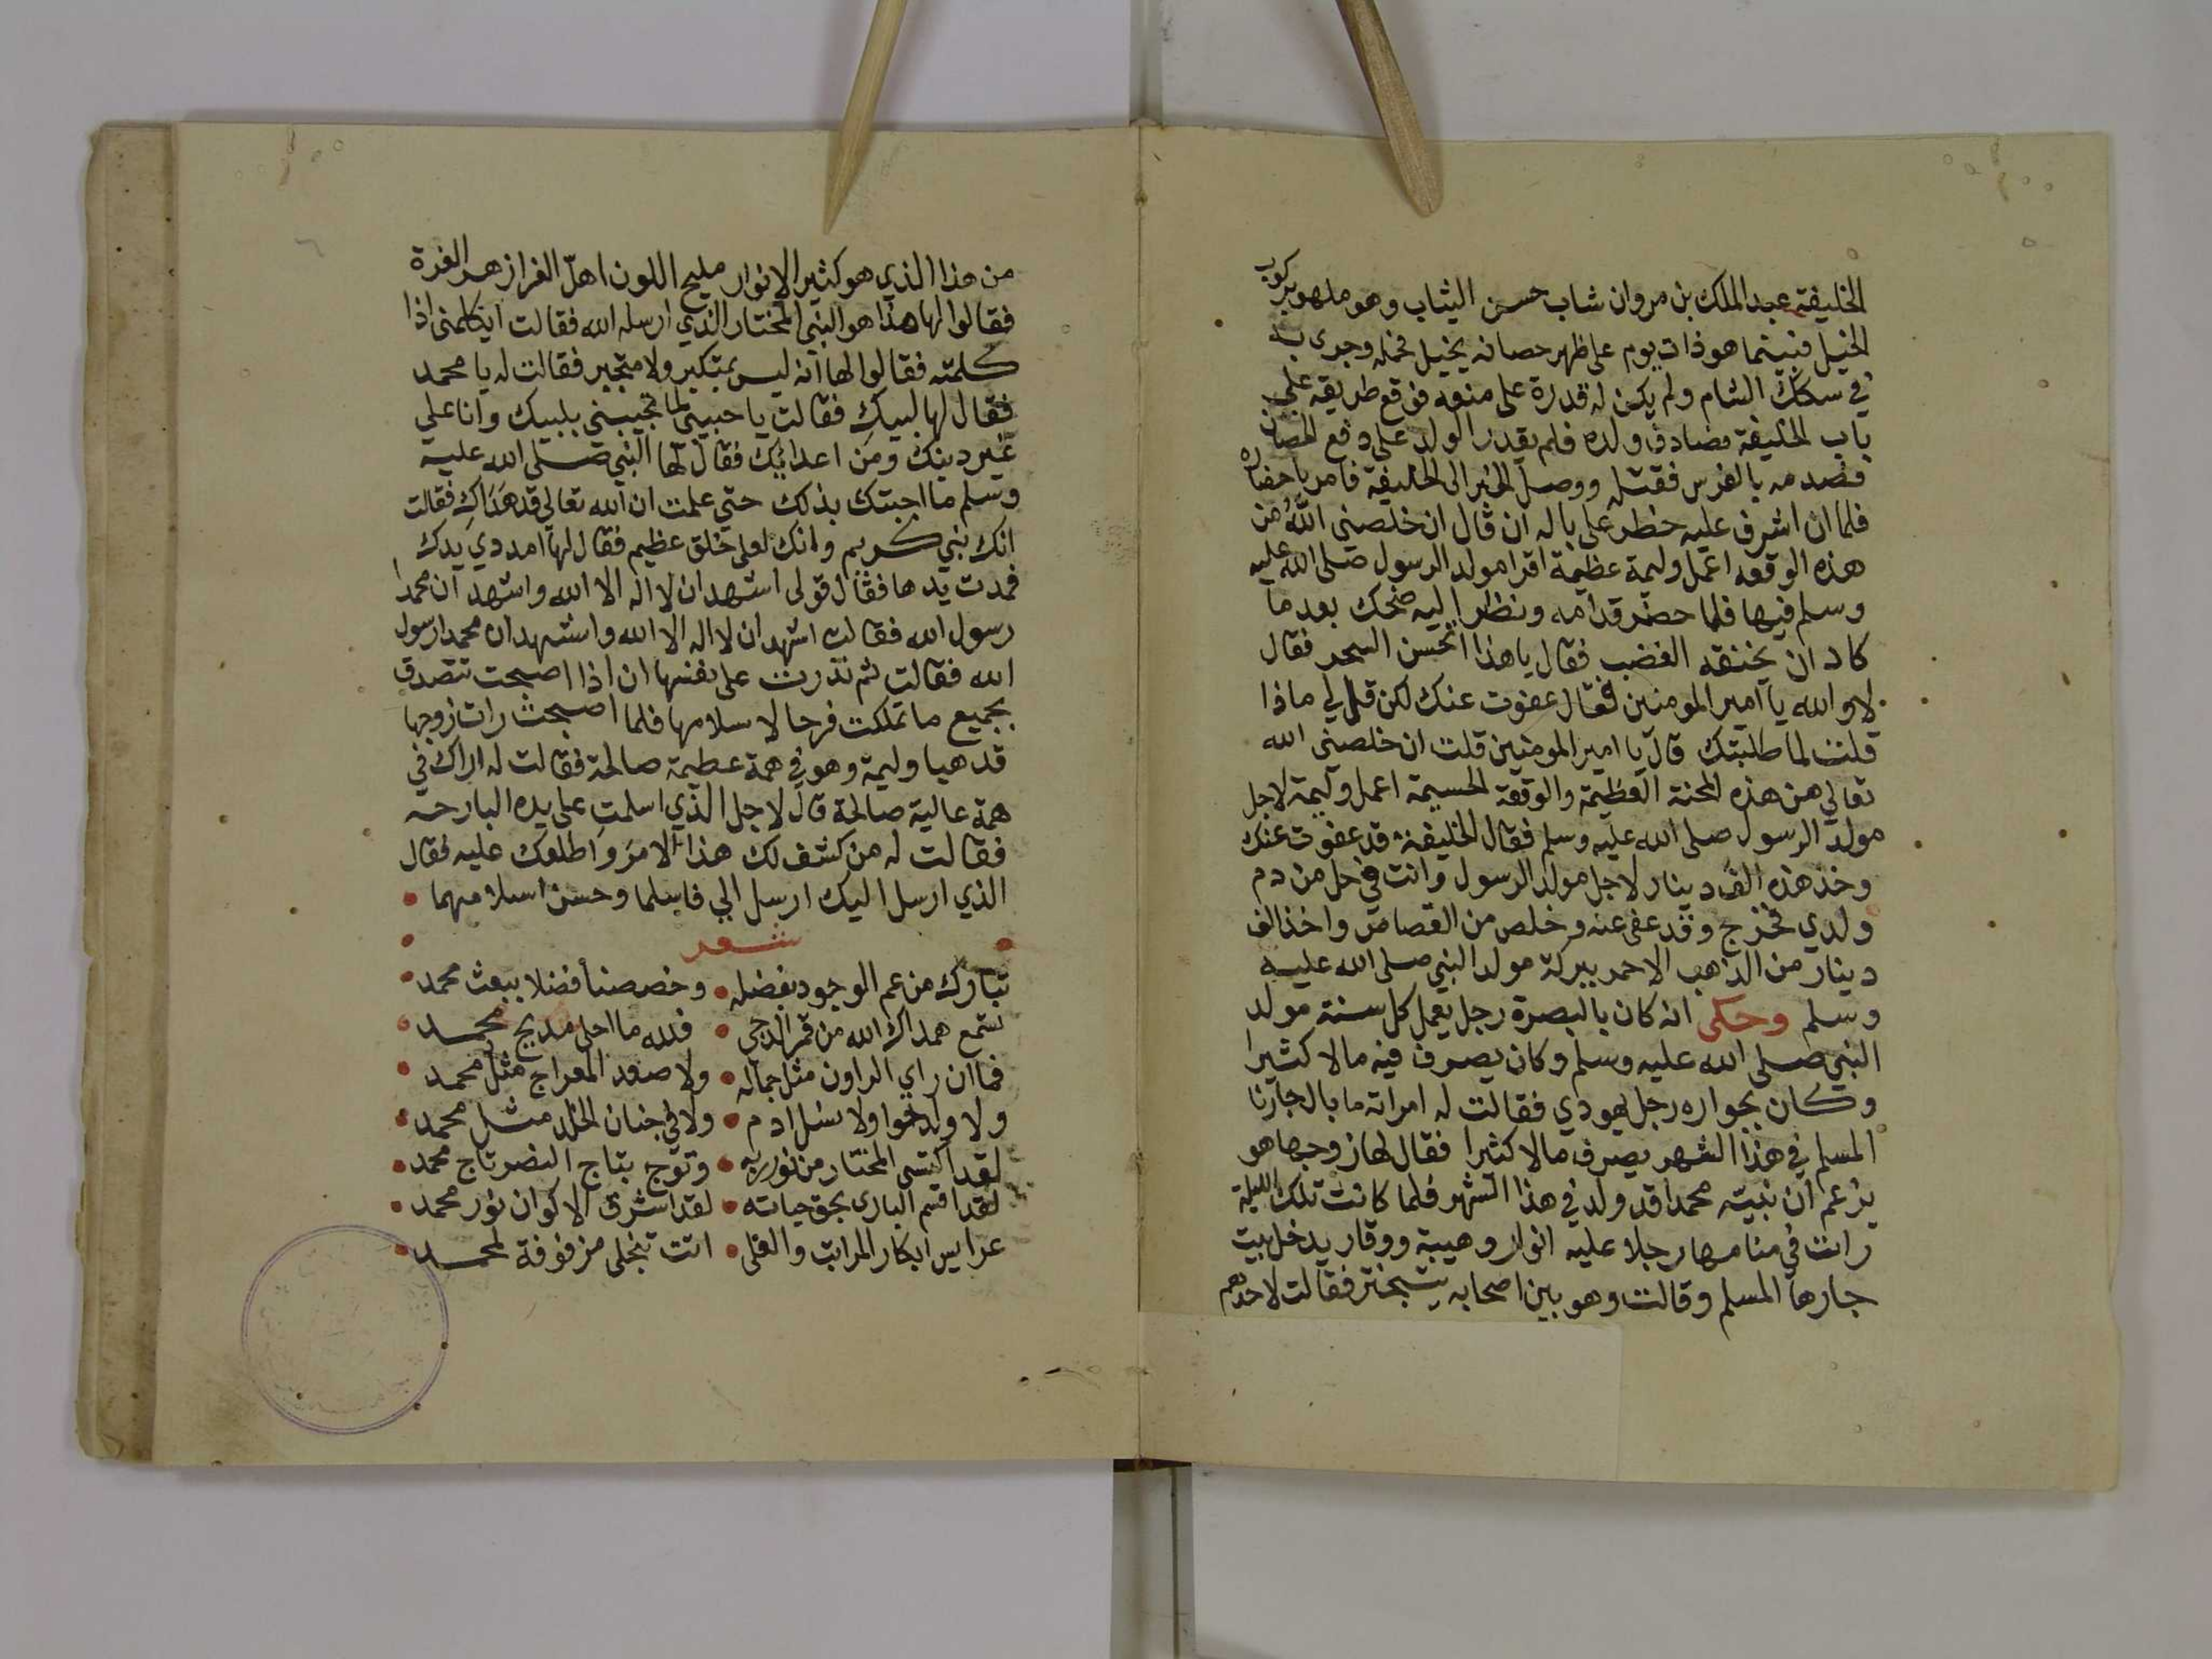 الخليفة عبد الملك بن مروان شاب حسن الثياب وهو ملهو بركوب
الخيل فبينما هو ذات يوم على ظهر حصانه يخيل فحمله وجرى به
في سكك الشام ولم يكن له قدرة على منعه فوقع طريقه على
باب الخليفة فصادف ولده فلم يقدر الولد على دفع الحصان
فصدمه بالفرس فقتله ووصل الخبر الى الخليفة فامر باحضاره
فلما ان اشرف عليه خطر على باله ان قال ان خلصني الله من
هذه الوقعه اعمل وليمة عظيمة اقرا مولد الرسول صلى الله عليه
وسلم فيها فلما حضر قدامه ونظر اليه ضحك بعد ما
كاد ان يخنقه الغضب فقال يا هذا اتحسن السحر فقال
لا والله يا امير المومنين فقال عفوت عنك لكن قل لي ماذا
قلت لما طلبتك قال يا امير المومنين قلت ان خلصني الله
تعالى من هذه المحنة العظيمة والوقعة الجسيمة اعمل وليمة لاجل
مولد الرسول صلى الله عليه وسلم فقال الخليفة قد عفوت عنك
وخذ هذه الف دينار لاجل مولد الرسول وانت في حل من دم
ولدي فخرج وقد عفى عنه وخلص من القصاص واخذ الف
دينار من الذهب الاحمر ببركة مولد النبي صلى الله عليه
وسلم وحكى انه كان بالبصرة رجل يعمل كل سنة مولد
النبي صلى الله عليه وسلم وكان يصرف فيه مالا كثيرا
وكان بجواره رجل يهودي فقالت له امراته ما بال جارنا
المسلم في هذا الشهر يصرف مالا كثيرا فقال لها زوجها هو
يزعم ان نبيه محمدا قد ولد في هذا الشهر فلما كانت تلك الليلة
رات في منامها رجلا عليه انوار وهيبة ووقار يدخل بيت
جارها المسلم وقالت وهو بين اصحابه يتبختر فقالت لاحدهم
من هذا الذي هو كثير الانوار مليح اللون اهل الغر ازهر الغرة
فقالوا لها هذا هو النبي المختار الذي ارسله الله فقالت ايكلمنى اذا
كلمته فقالوا لها انه ليس بمتكبر ولا متجبر فقالت له يا محمد
فقال لها لبيك فقالت يا حبيبي لما تجيبني بلبيك وانا على
غير دينك ومن اعدائك فقال لها النبي صلى الله عليه
وسلم ما اجبتك بذلك حتي علمت ان الله تعالى قد هداك فقالت
انك نبي كريم وانك لعلى خلق عظيم فقال لها امددي يدك
فمدت يدها فقال قولى اشهد ان لا اله الا الله واشهد ان محمدا
رسول الله فقالت اشهد ان لا اله الا الله واشهد ان محمدا رسول
الله فقالت ثم نذرت على نفسها ان اذا اصبحت تتصدق
بجميع ما تملكت فرحا لاسلامها فلما اصبحت رات زوجها
قد هيا وليمة وهو في همة عظيمة صالحة فقالت له اراك في
همة عالية صالحة قال لاجل الذي اسلمت على يده البارحه
فقالت له من كشف لك هذا الامر واطلعك عليه فقال
الذي ارسل اليك ارسل الي فاسلما وحسن اسلامهما
شعر
تبارك من عم الوجود بفضله • وخصصنا فضلا ببعث محمد
تسمع هداك الله من قمر الدجي • فلله ما احلى مديح محمد
فما ان راي الراون مثل جماله • ولا صعد المعراج مثل محمد
ولا ولد حوا ولا نسل ادم • ولا في جنان الخلد مثل محمد
لقد اكتسى المختار من نور ربه • وتوج بتاج النصر تاج محمد
لقد اقسم البارى بحق حياته • لقد اشرق الاكوان نور محمد
عرايس ابكار المراتب والعلى • اتت تنجلى مزفوفة لمحمد